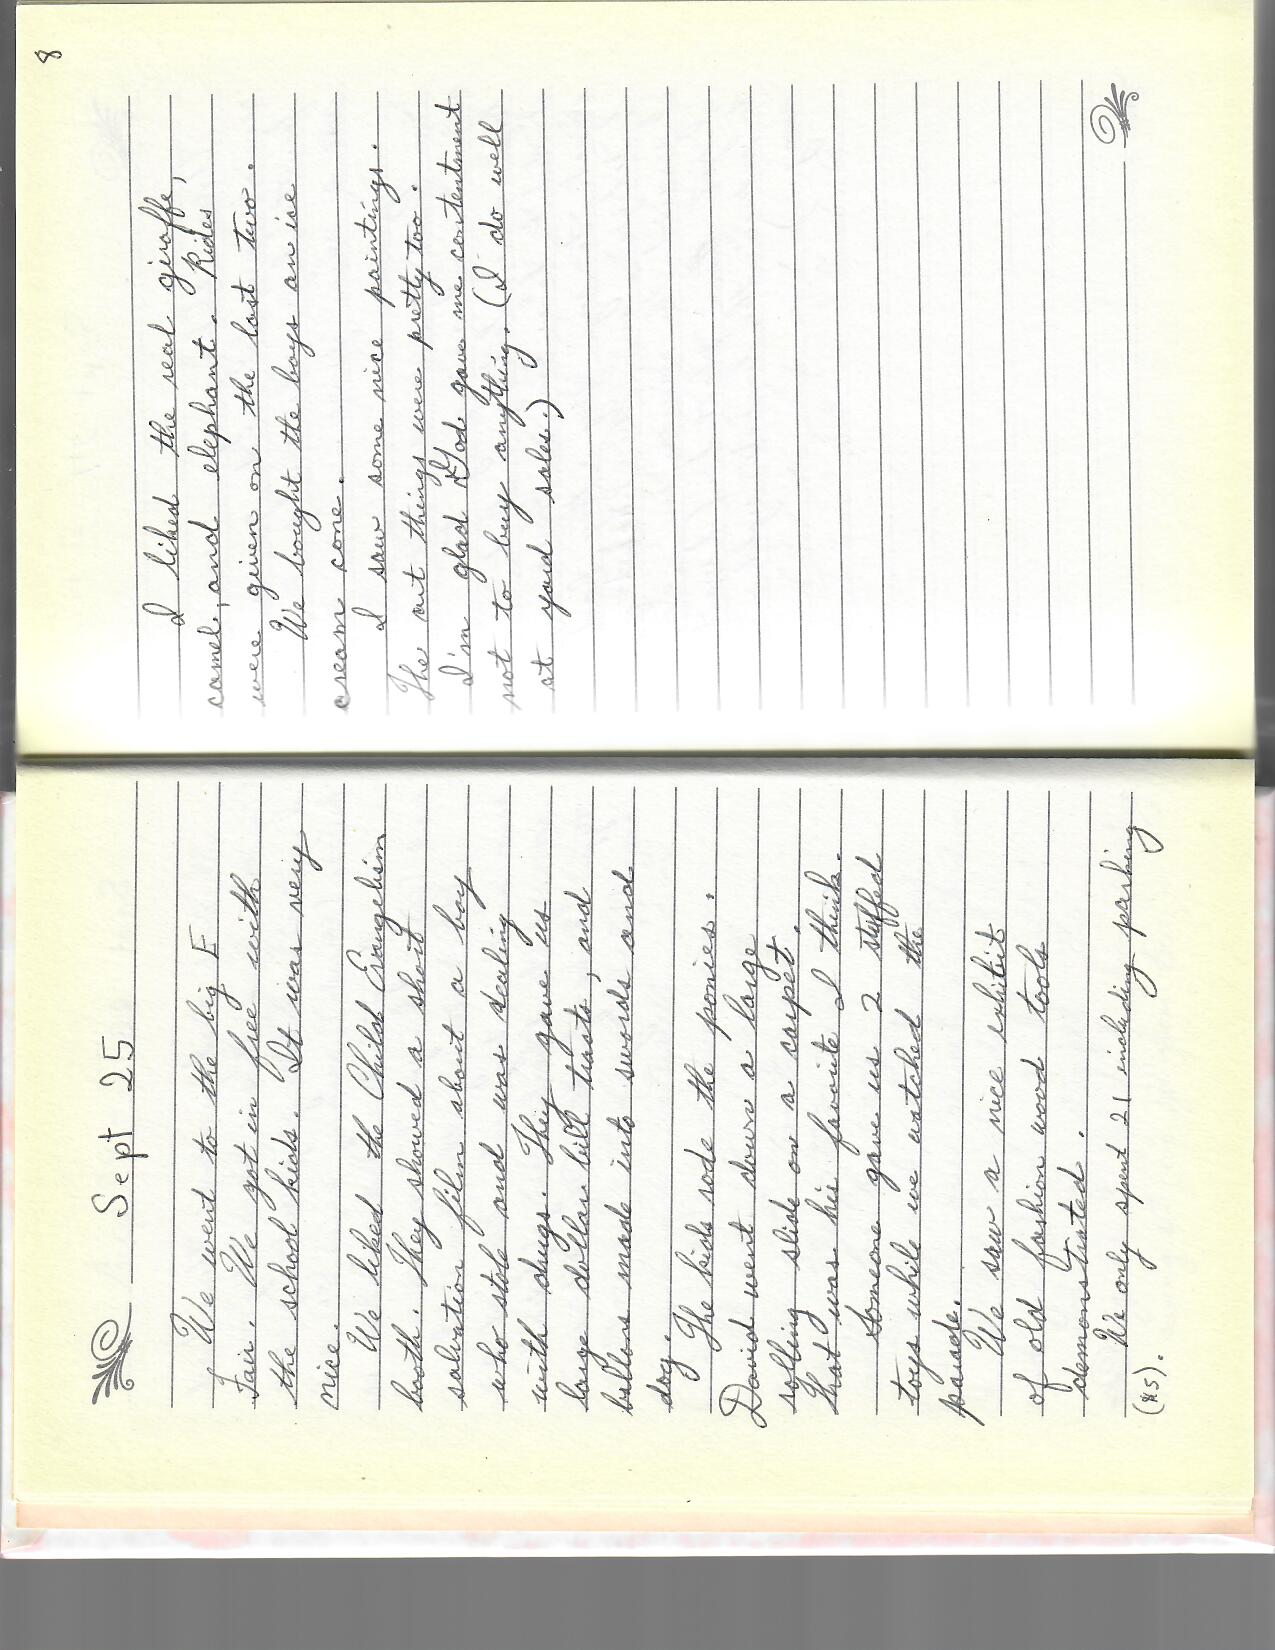 Sept 25
We went to the big E
Fair. We got in free with
the school kids. It was very
nice.
We liked the Child Evangelism
booth. They showed a short
salvation film about a boy
who stole and was dealing
with drugs. They gave us
large dollar bill tracts, and
ballons made into swords and
dog.
The kids rode the ponies.
David went down a large
rolling slide on a carpet.
That was his favorite I think.
Someone gave us 2 stuffed
toys while we watched the
parade.
We saw a nice exhibit
of old fashion wood tools
demonstrated.
We only spent 21 including parking
($5).
8
I liked the real giraffe,
camel, and elephant. Rides
were given on the last two.
We bought the boys an ice
cream cone.
I saw some nice paintings.
The art things were pretty too.
I'm glad God gave me contentment
not to buy anything. (I do well
at yard sales.)